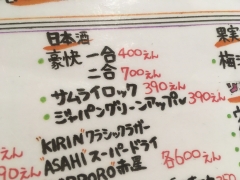 日本酒
豪快 一合 400えん
二合 700えん
・サムライロック 390えん
・ジャパングリーンアップル 390えん
"KIRIN" クラシックラガー
"ASAHI" スーパードライ
各600えん
果実